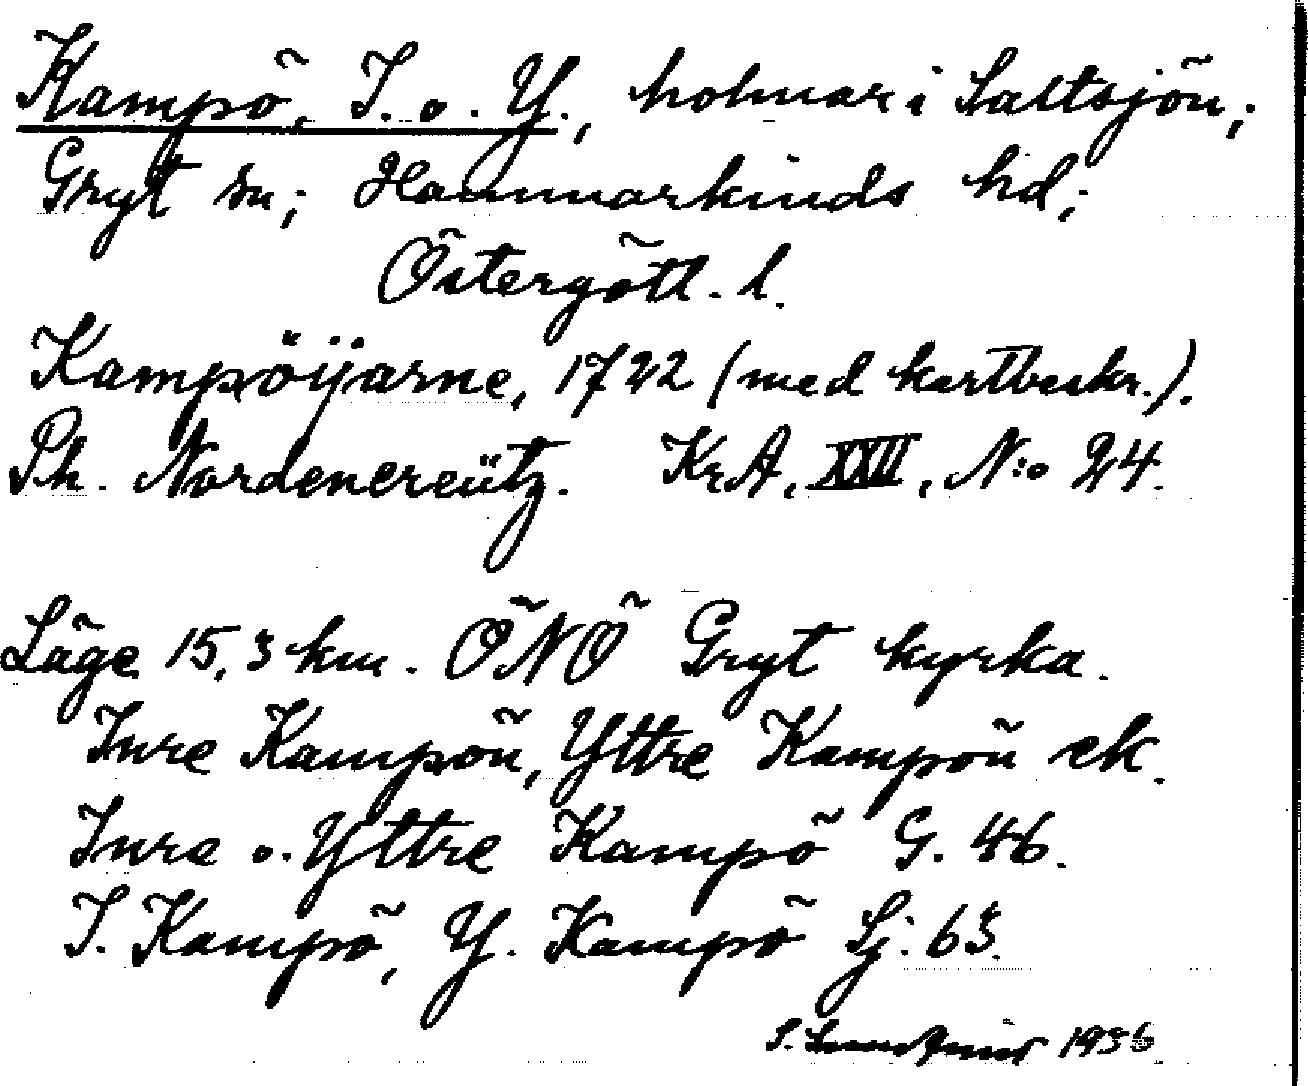 Kampö, I. o. Y., holmar i Saltsjön;
Gryt sn; Hammarkinds hd;
Östergötl. l.
Kampöijarne, 1722 (med kartbeskr.).
Ph. Nordencreütz. KrA, XXII, N:o 24.
Läge 15,3 km. ÖNÖ Gryt kyrka.
Inre Kampön, Yttre Kampön ek.
Inre o. Yttre Kampö G. 46.
I. Kampö, Y. Kampö Sj. 63.
S. 1936